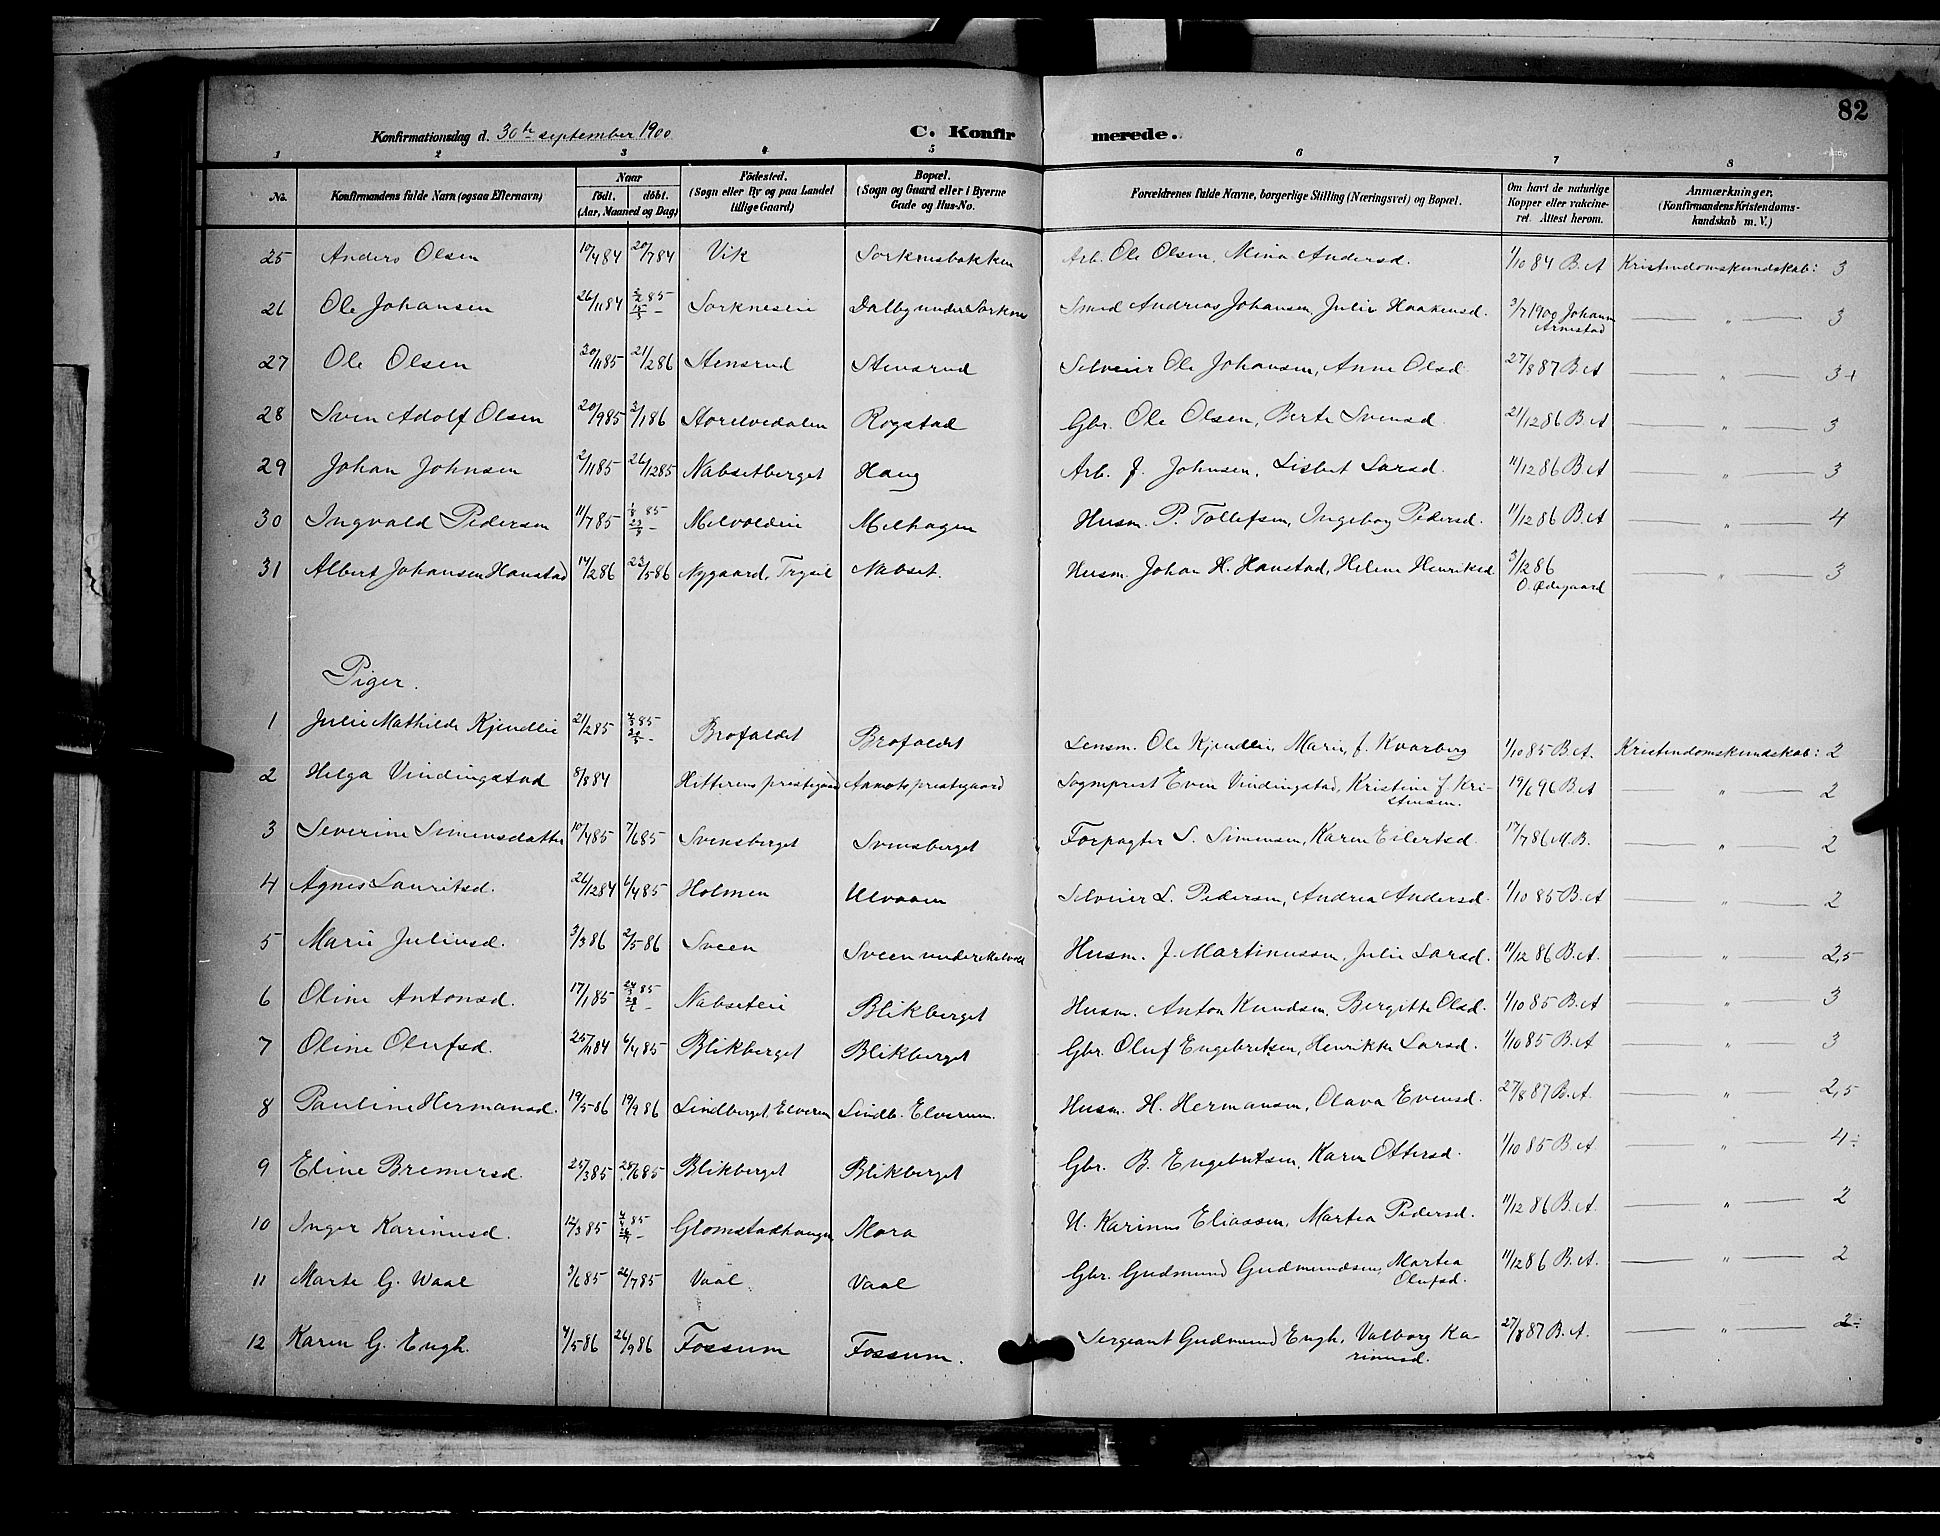 82
Konfirmationsdag d. 30te september 1900
C. Konfirmerede.
1 2 3 4 5 6 7 8
No. Konfirmandens fulde Navn (ogsaa Efternavn) Naar født. døbt. (Aar, Maaned og Dag) Fødested. (Sogn eller By og paa Landet tillige Gaard) Bopæl. (Sogn og Gaard eller i Byerne Gade og Hus-No. Forældrenes fulde Navne, borgerlige Stilling (Næringsvei) og Bopæl. Om havt de naturlige Kopper eller vakcineret. Attest herom. Anmærkninger, (Konfirmandens Kristendomskundskab m. V.)
25 Anders Olsen 10/4 84 20/7 84 Vik Sorknesbakken Arb. Ole Olsen, Mina Andersd. 1/10 84 B. A Kristendomskundskab: 3
26 Ole Johansen 26/11 84 85 Sorkneseie Dalby under Sorknes Smed Andreas Johansen, Julie Haakensd. 3/7 1900 Johann Arnestad — " — 3
27 Ole Olsen 30/11 85 21/2 86 Stensrud Stensrud Selveier Ole Johansen, Anne Olsd. 27/8 87 B. A — " — 3+
28 Sven Adolf Olsen 20/9 85 3/1 86 Storelvedalen Rogstad Gbr. Ole Olsen, Berte Svensd. 21/12 86 B. A — " — 3
29 Johan Johnsen 2/11 85 26/12 85 Nabsetberget Haug Arb. J. Johnsen, Lisbet Larsd. 11/12 86 B. A — " — 3
30 Ingvald Pedersen 11/7 85 85 Melvoldeie Melhagen Husm. P. Tollefsen, Ingeborg Pedersd. 11/12 86 B. A — " — 4
31 Albert Johansen Hanstad 14/2 86 23/5 86 Nygaard, Trysil Nabset. Husm. Johan H. Hanstad, Helene Henriksd 3/12 86 O. Ødegaard — " — 3
Piger.
1 Julie Mathilde Kjendlie 21/2 85 85 Brofaldet Brofaldet Lensm. Ole Kjendlie, Marie, f. Kvarberg 1/10 85 B. A. Kristendomskundskab: 2
2 Helga Vindingstad 8/8 84 Hitterens prestegaard Aamots prestegaard Sogneprest Even Vindingstad, Kristine f. Kristensen. 19/6 96 B. A — " — 2
3 Severine Simensdatter 10/4 85 7/6 85 Svensberget Svensberget Forpagter S. Simensen, Karen Eilertsd. 17/7 86 M. B. — " — 2
4 Agnes Lauritsd. 26/12 84 6/4 85 Holmen Ulvaaen Selveier L. Pedersen, Andrea Andersd. 1/10 85 B. A — " — 2
5 Marie Juliusd. 3/3 86 2/5 86 Sveen Sveen under Melvold Husm. J. Martinussen, Julie Larsd. 11/12 86 B. A. — " — 2,5
6 Oline Antonsd. 17/1 85 85 Nabseteie Blikberget Husm. Anton Knudsen, Bergitte Olsd. 1/10 85 B. A — " — 3
7 Oline Olufsd. 25/11 84 6/4 85 Blikberget Blikberget Gbr. Oluf Engebretsen, Henrikke Larsd. 1/10 85 B. A — " — 3
8 Pauline Hermansd. 19/5 86 19/9 86 Lindberget, Elverum Lindb. Elverum. Husm. H. Hermansen, Olava Evensd. 27/8 87 B. A. — " — 2,5
9 Eline Bremersd. 25/3 85 28/6 85 Blikberget Blikberget Gbr. B. Engebretsen, Karen Ottersd. 1/10 85 B. A. — " — 4÷
10 Inger Karinusd. 12/3 85 85 Glomstadhaugen Mora U. Karinus Eliassen, Martea Pedersd. 11/12 86 B. A. — " — 2
11 Marte G. Waal 3/6 85 26/7 85 Vaal Vaal Gbr. Gudmund Gudmundsen, Martea Olufsd. 11/12 86 B. A. — " — 2
12 Karen G. Engh. 4/5 86 26/9 86 Fossum Fossum. Sergeant Gudmund Engh, Valborg Karinusd. 27/8 87 B. A. — " — 2÷